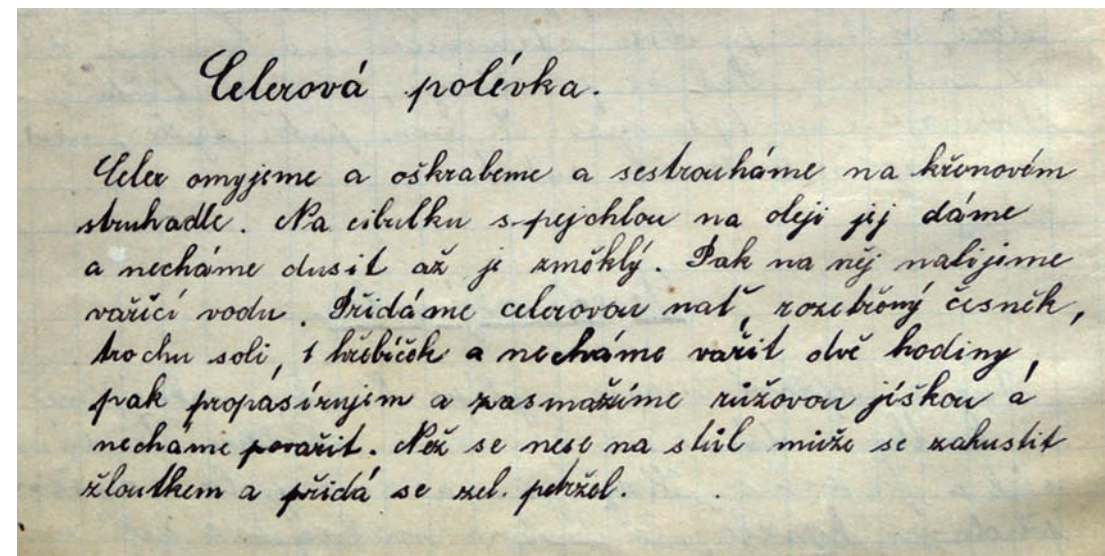 Celerová polévka.
Celer omyjeme a oškrabeme a sestrouháme na křenovém
struhadle. Na cibulku s-pejchlou na oleji jej dáme
a necháme dusit až je změklý. Pak na něj nalijeme
vařící vodu. Přidáme celerovou nať, rozetřený česněk,
trochu soli, 1 hřebíček a necháme vařit dvě hodiny,
pak propasírujem a zasmažíme růžovou jíškou a
necháme povařit. Než se nese na stůl může se zahustit
žloutkem a přidá se zel. petržel.